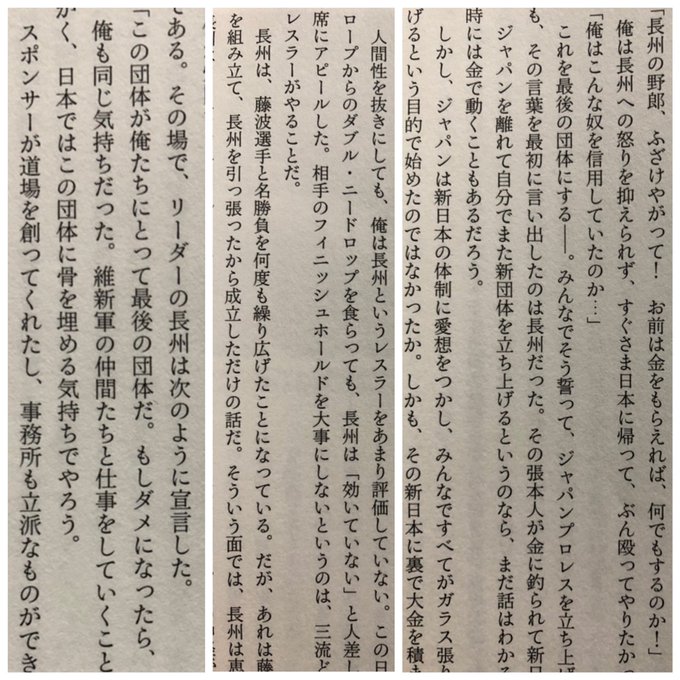 「長州の野郎、ふざけやがって！　お前は金をもらえれば、何でもするのか！」
俺は長州への怒りを抑えられず、すぐさま日本に帰って、ぶん殴ってやりたかっ
「俺はこんな奴を信用していたのか…」
これを最後の団体にする――。みんなでそう誓って、ジャパンプロレスを立ち上げ
も、その言葉を最初に言い出したのは長州だった。その張本人が金に釣られて新日
ジャパンを離れて自分でまた新団体を立ち上げるというのなら、まだ話はわかる
時には金で動くこともあるだろう。
しかし、ジャパンは新日本の体制に愛想をつかし、みんなですべてがガラス張り
げるという目的で始めたのではなかったか。しかも、その新日本に裏で大金を積ま
人間性を抜きにしても、俺は長州というレスラーをあまり評価していない。この日
ロープからのダブル・ニードロップを食らっても、長州は「効いていない」と人差し
席にアピールした。相手のフィニッシュホールドを大事にしないというのは、三流ど
レスラーがやることだ。
長州は、藤波選手と名勝負を何度も繰り広げたことになっている。だが、あれは藤
を組み立て、長州を引っ張ったから成立しただけの話だ。そういう面では、長州は恵
である。その場で、リーダーの長州は次のように宣言した。
「この団体が俺たちにとって最後の団体だ。もしダメになったら、
俺も同じ気持ちだった。維新軍の仲間たちと仕事をしていくこと
かく、日本ではこの団体に骨を埋める気持ちでやろう。
スポンサーが道場を創ってくれたし、事務所も立派なものができ